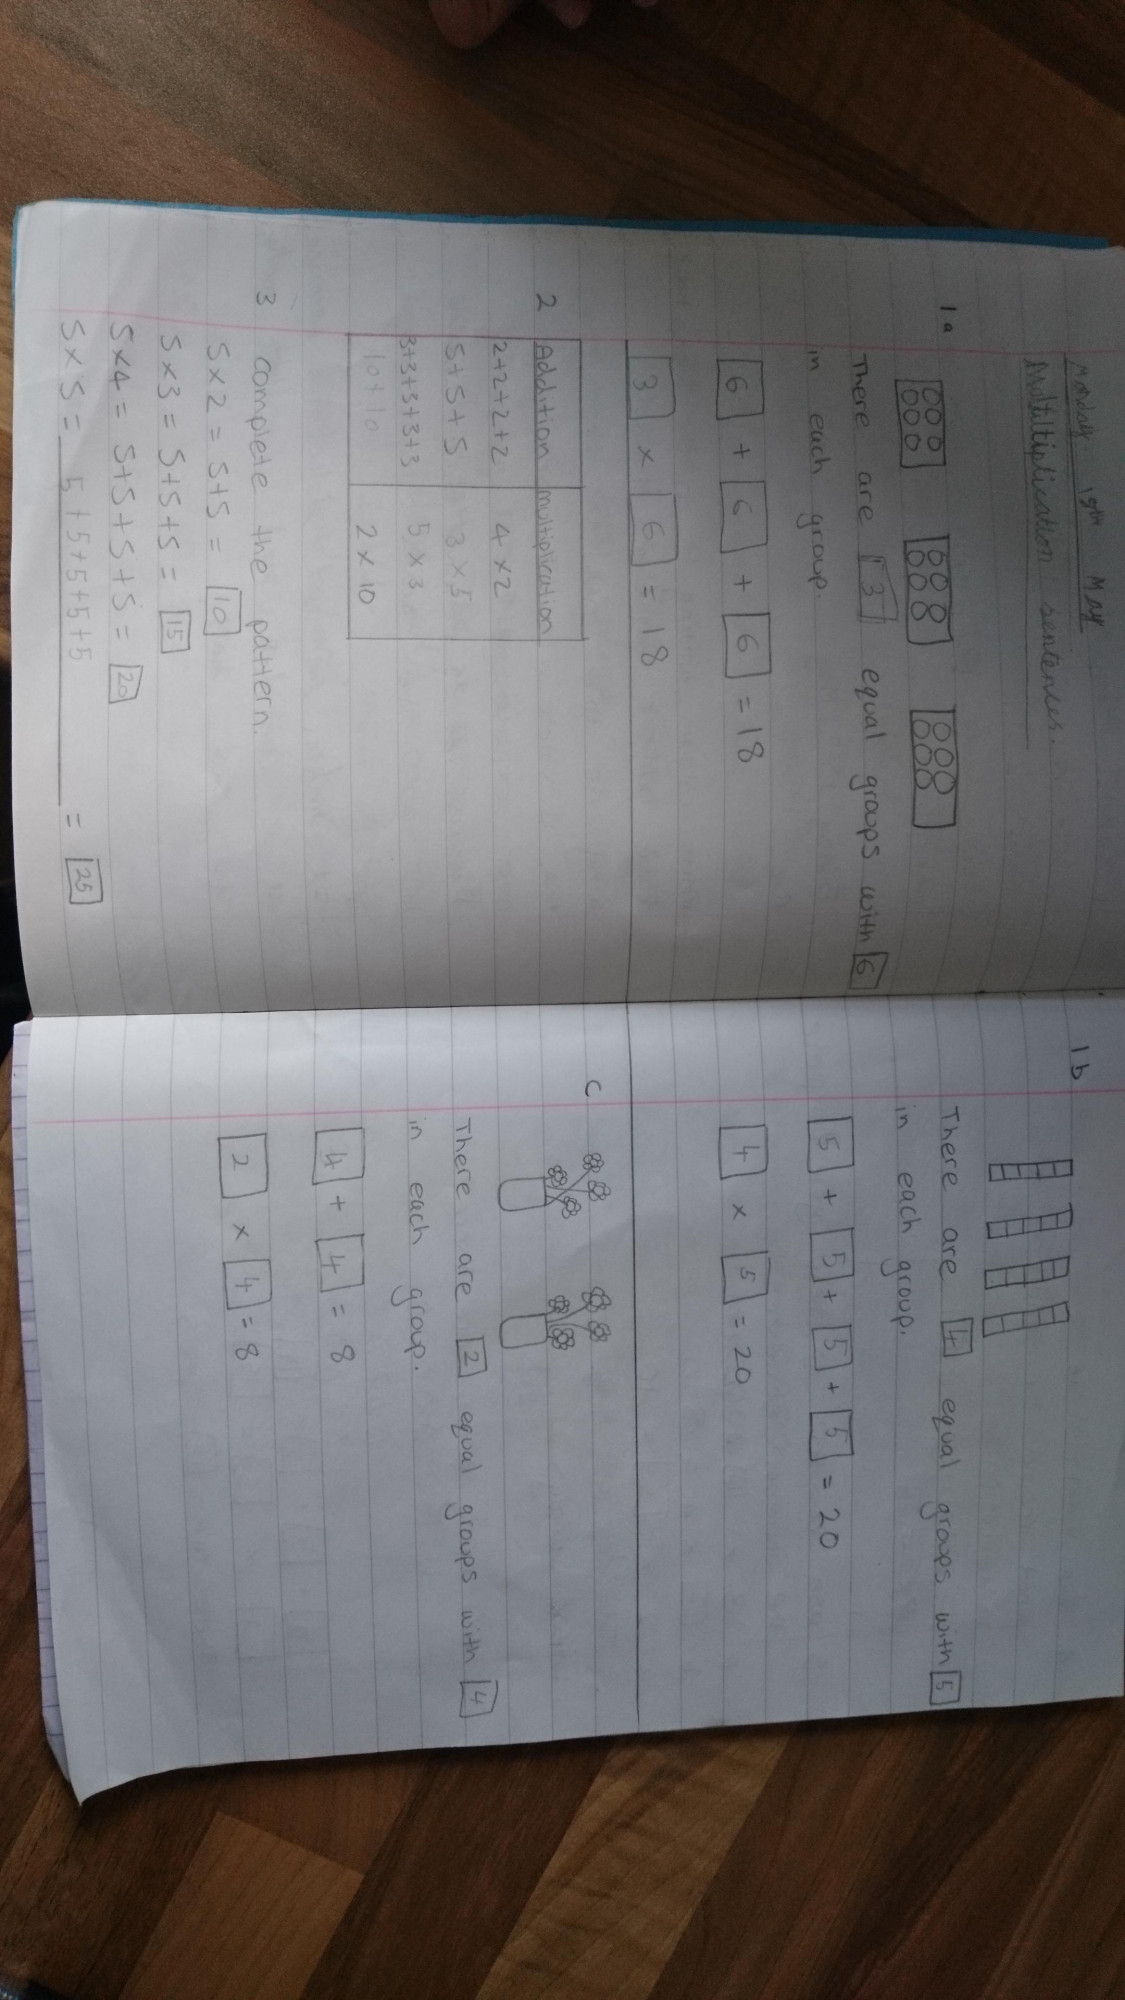 Monday 15th May
Multiplication sentences.
1a
There are 3 equal groups with 6
in each group.
6 + 6 + 6 = 18
3 × 6 = 18
2
Addition multiplication
2+2+2+2 4 × 2
5+5+5 3 × 5
3+3+3+3+3 5 × 3
10+10 2 × 10
3 complete the pattern.
5×2 = 5+5 = 10
5×3 = 5+5+5 = 15
5×4 = 5+5+5+5 = 20
5×5 = 5+5+5+5+5 = 25
1b
There are 4 equal groups with 5
in each group.
5 + 5 + 5 + 5 = 20
4 × 5 = 20
c
There are 2 equal groups with 4
in each group.
4 + 4 = 8
2 × 4 = 8